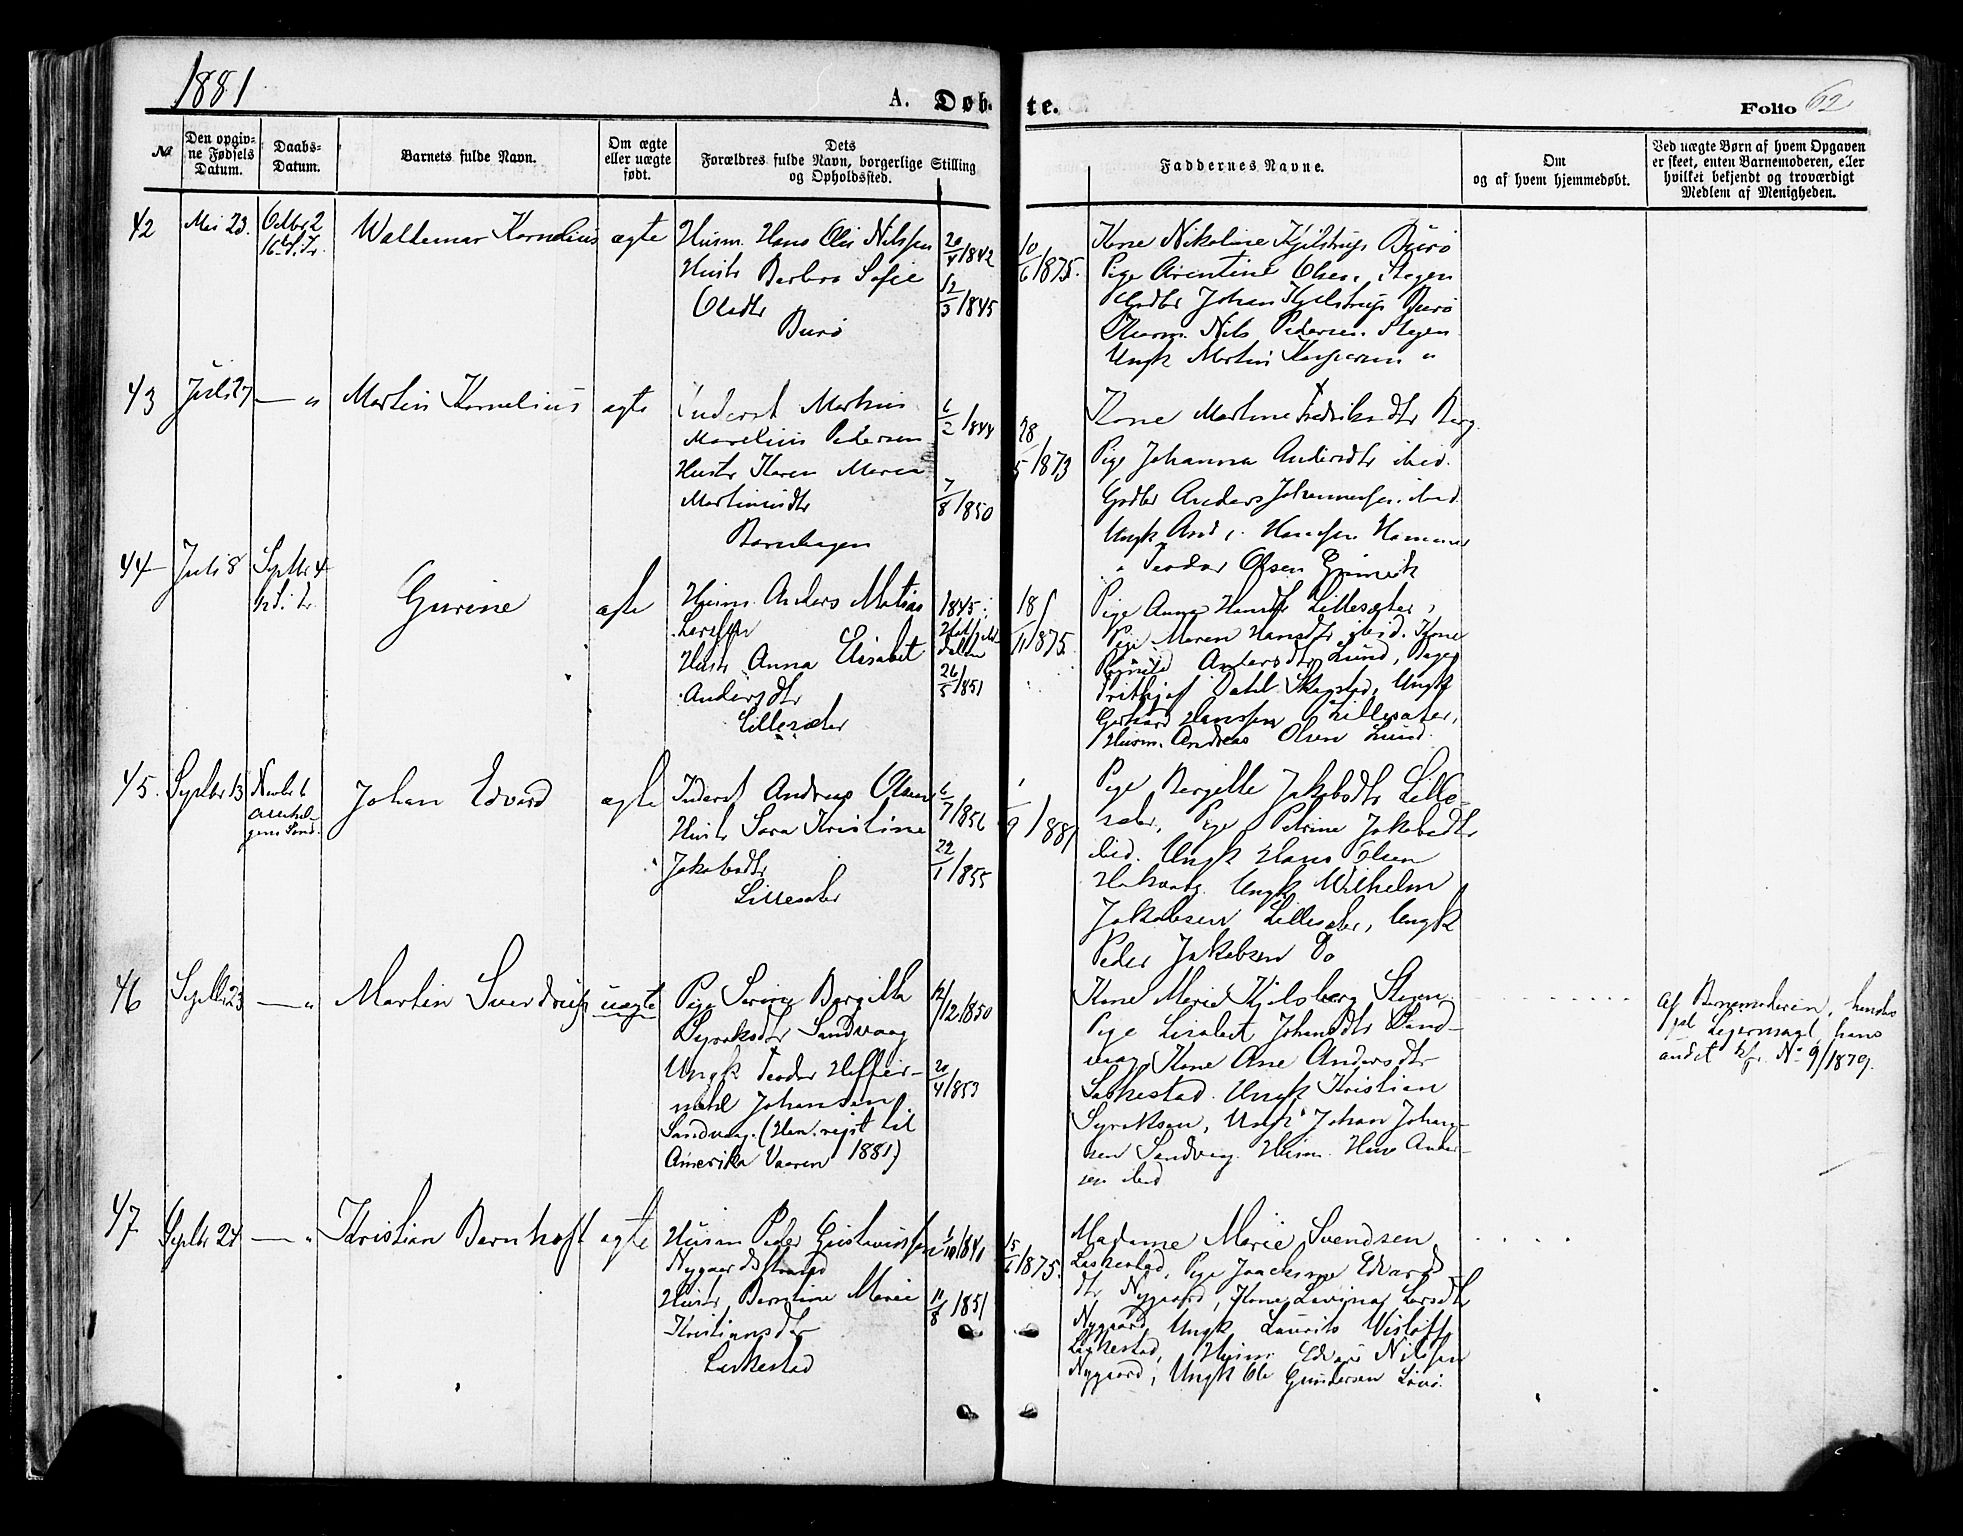 1881
A. Døbte.
Folio 62
№
Den opgivne Fødsels Datum.
Daabs-Datum.
Barnets fulde Navn.
Om ægte eller uægte født.
Dets Forældres fulde Navn, borgerlige Stilling og Opholdssted.
Faddernes Navne.
Om og af hvem hjemmedøbt.
Ved uægte Børn af hvem Opgaven er skeet, enten Barnemoderen, eller hvilket bekjendt og troværdigt Medlem af Menigheden.
42
Mai 23.
Octbr 2
Waldemar Kornelius
ægte
Husm. Hans Olai Nilssen
Hustr Barbro Sofie
Olsdtr
Burø
20/4 1842
12/3 1845
10/6 1875.
Kone Nikoline Kjelstrup Burø
Pige Arentine Olsen, Stegen
Gdbr Johan Kjelstrup Burø
Husm. Nils Pedersen Stegen
Ungk Martin Kaspersen "
43
Juli 27
— "
Martin Kornelius
ægte
Inderst Martin
Marelius Pedersen
Hustr Karen Maren
Martinusdtr
6/2 1844
7/8 1850
28/5 1873
Kone Martine Fredriksdtr Berg
Pige Johanna Andersdtr ibid.
Gdbr Anders Johannessen ibid.
Ungk And. Hansen Hammer
" Teodor Olsen
44
Juli 8
Septbr 4
Gurine
ægte
Husm. Anders Matias
Larssen
Hustr Anna Elisabet
Andersdtr
Lillesæter
1845
26/5 1851
18/11 1875.
Pige Anna Hansdtr Lillesæter,
Pige Maren Hansdtr ibid. Kone
Andersdtr Lund,
Frithjof Dahl Skagstad, Ungk
Gerhard Hanssen Lillesæter,
Husm. Andreas Olsen Lund.
45.
Septbr 13
Novbr 6
Johan Edvard
ægte
Inderst Andreas Olsen
Hustr Sara Kristine
Jakobsdtr
Lillesæter
6/7 1856
22/1 1855
1/9 1881
Pige Bergitte Jakobsdtr Lille-
sæter, Pige Petrine Jakobsdtr
ibid. Ungk Hans Olsen
Ungk Wilhelm
Jakobsen Lillesæter, Ungk
Peder Jakobsen Do
46
Septbr 23
— "
Martin Sverdrup
uægte
Pige Serine Bergitta
Syraksdtr Sandvaag
Ungk Teodor Heffer-
mehl Johansen
Sandvaag. (Han rejst til
Amerika Vaaren 1881)
12/12 1850
20/4 1853
Kone Marie Kjelsberg Stegen
Pige Lisabet Johansdtr Sand-
vaag, Kone Ane Andersdtr
Laskestad. Ungk Kristian
Syraksen, Ungk Johan Johan-
sen Sandvaag. Husm. Hans Ander-
sen ibid
Af Barnemoderen, hendes
Leiermaal, hans
andet kfr. No 9/1879.
47
Septbr 24
— "
Kristian Bernhoft
ægte
Husm Peder Gustavussen
Nygaard
Hustr Berntine Marie
Kristiansdtr
Laskestad
1841
11/8 1851
15/6 1875.
Madame Marie Svendsen
Laskestad, Pige Joackime Edvards
dtr Nygaard, Kone Lovina Larsdtr
Nygaard, Ungk Laurits Wisløff,
Laskestad, Husm. Edvard Nilssen
Nygaard, Ungk Ole Gundersen Løvø.